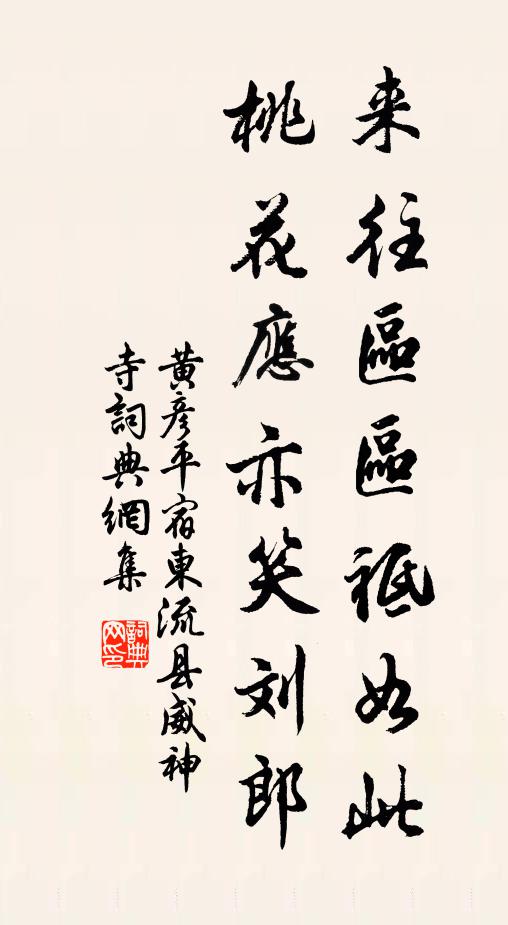 来往區區祗如此
桃花應亦笑刘郎
黄彦平宿東流县威神
寺詞典網集
詞典网印